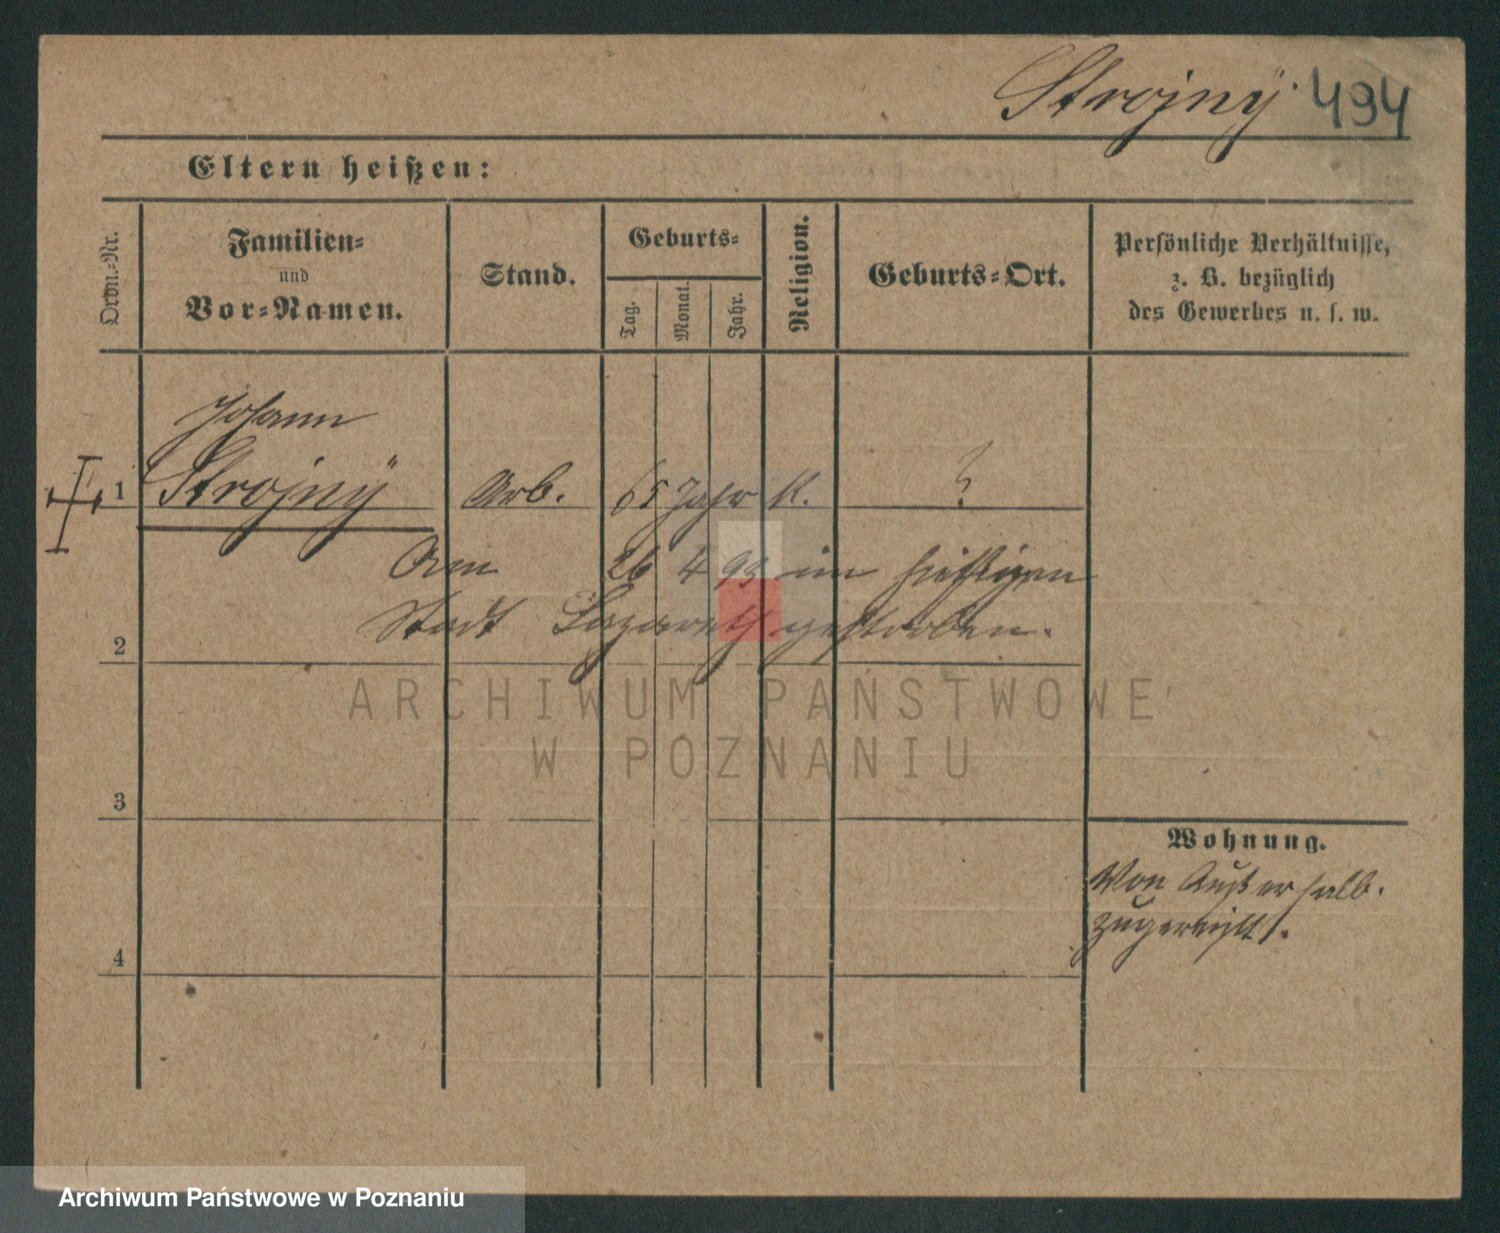 Strojnÿ. 494
Eltern heißen:
Ordn.-Nr.
Familien-
und
Vor-Namen.
Stand.
Geburts-
Tag.
Monat.
Jahr.
Religion.
Geburts-Ort.
Persönliche Verhältnisse,
z. B. bezüglich
des Gewerbes u. s. w.
Johann
1 Strojnÿ Arb. 65 Jahr K. ?
Am 26 4 93 im hiesigen
2 Stadt Lazareth gestorben.
ARCHIWUM PAŃSTWOWE
W POZNANIU
3
Wohnung.
Von Außerhalb.
4
Archiwum Państwowe w Poznaniu